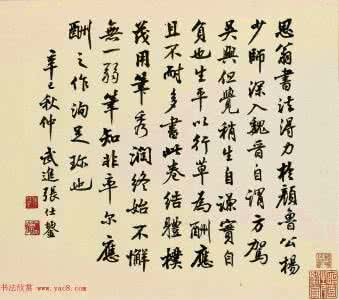 思翁書法得力於顏魯公楊
少師深入魏晉自謂方駕
吳興但覺稍生自謙實自
負也生平以行草為酬應
且不耐多書此卷結體樸
茂用筆秀潤終始不懈
無一弱筆知非率爾應
酬之作洵足珍也
辛巳秋仲武進張仕鑾
书法欣赏 www.yac8.com